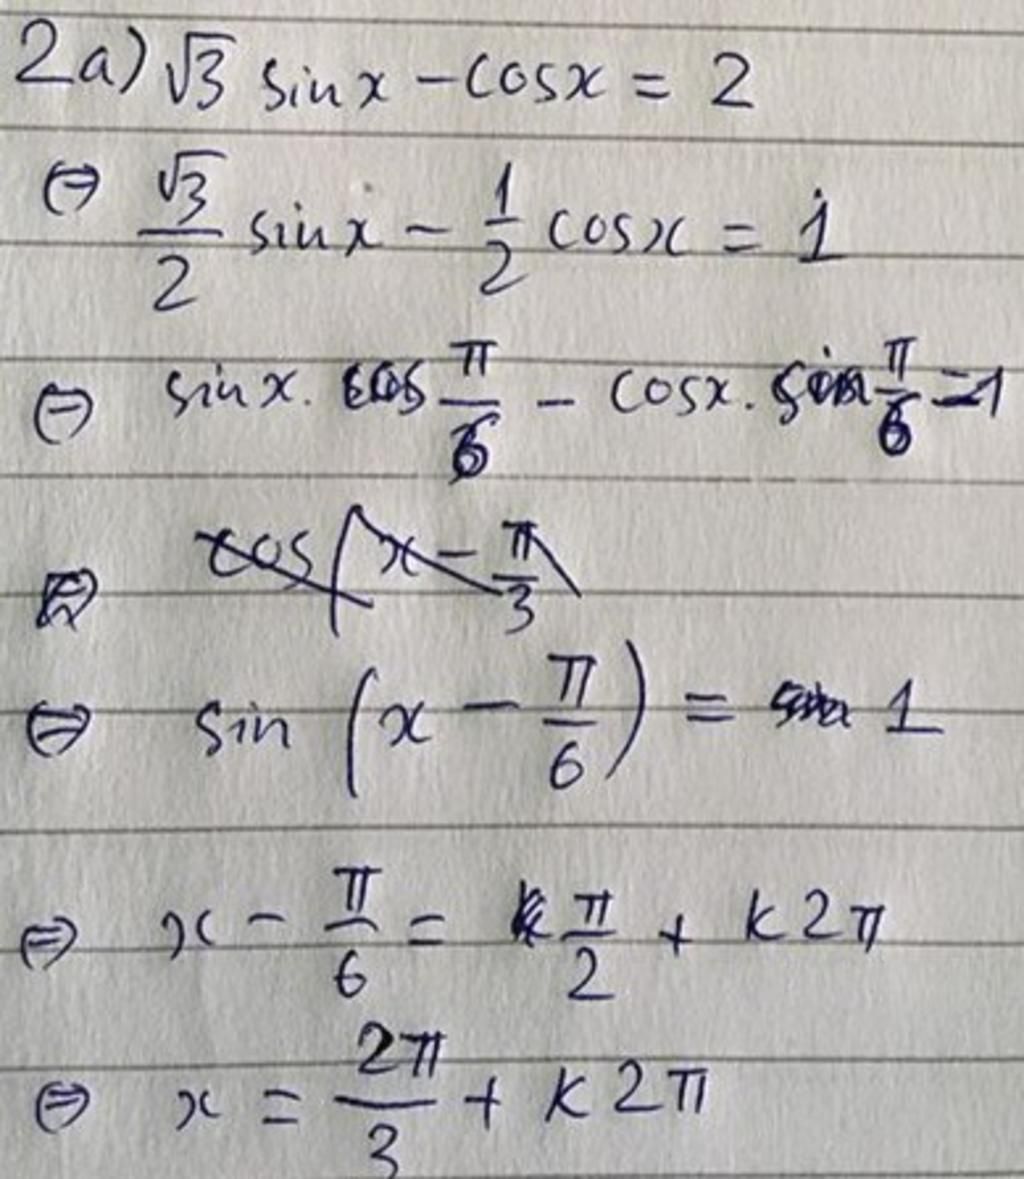 2a) √3 sinx - cosx = 2
⇔ √3/2 sinx - 1/2 cosx = 1
⇔ sinx. cos π/6 - cosx. sin π/6 = 1
⇔ cos(x - π/3
⇔ sin (x - π/6) = 1
⇔ x - π/6 = π/2 + k2π
⇔ x = 2π/3 + k2π